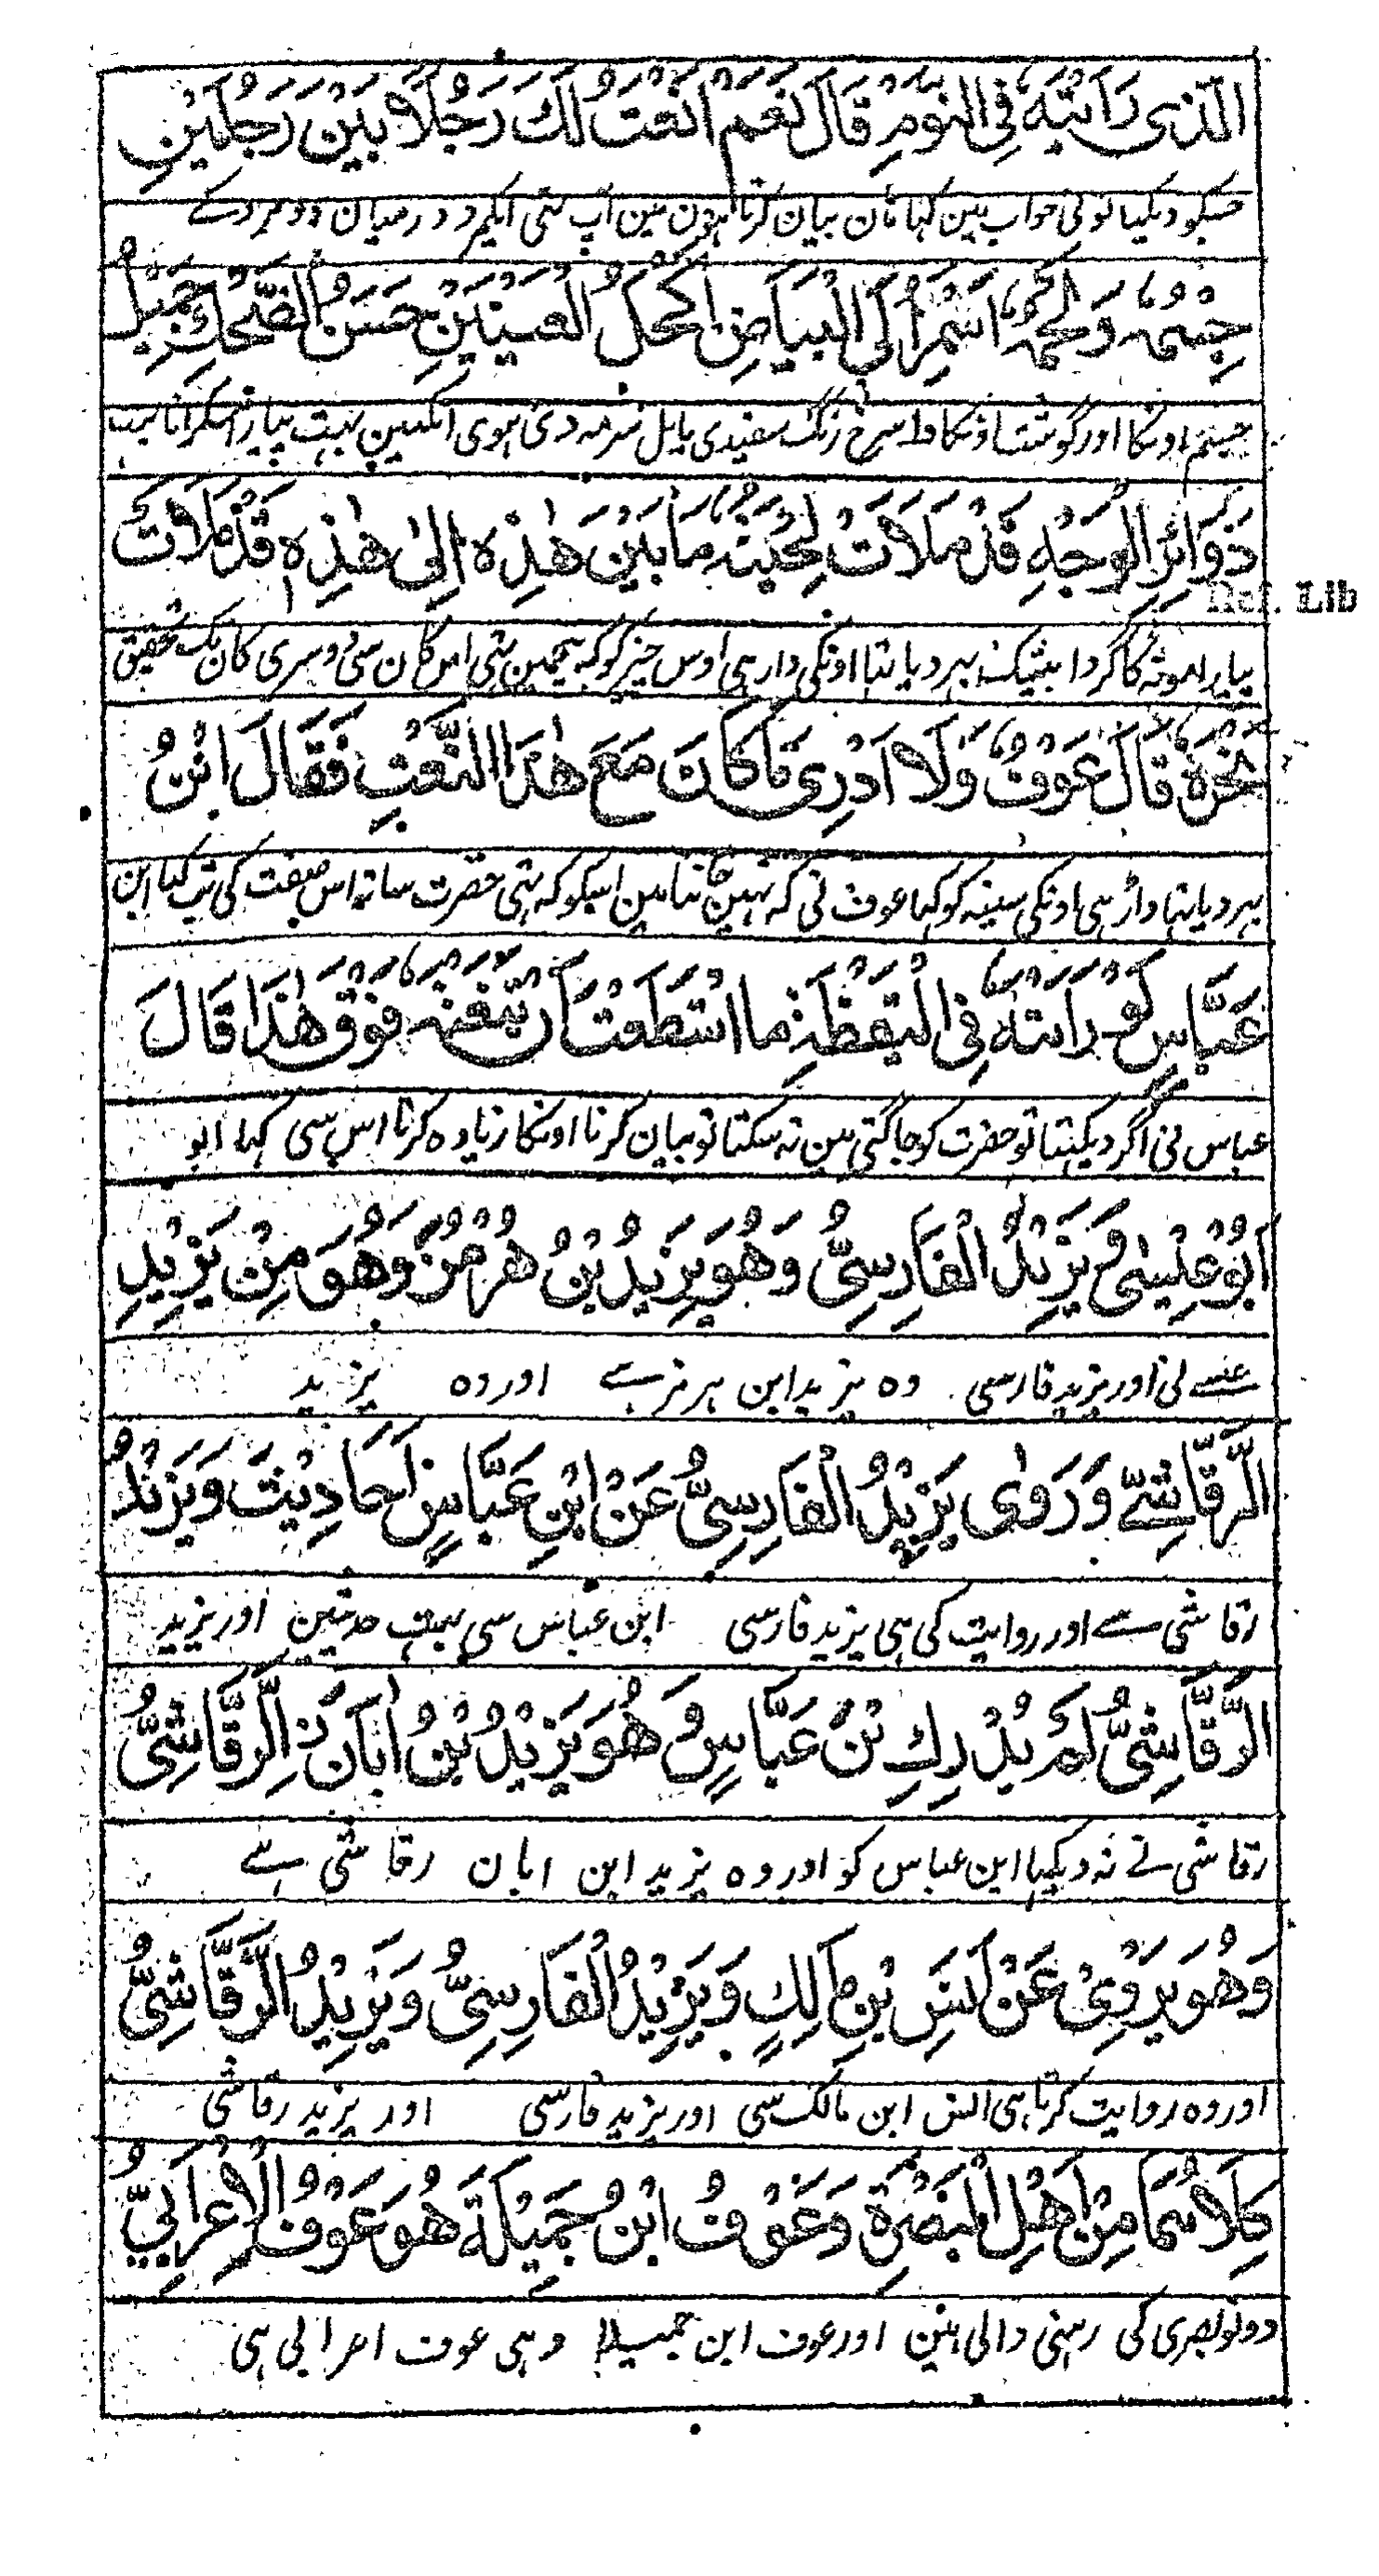 الَّذِی رَاَیْتَهٗ فِی النَّوْمِ قَالَ نَعَمْ اَنْعَتُ لَكَ رَجُلًا بَیْنَ رَجُلَیْنِ
جسکو دیکہا تونی خواب مین کہا ہان بیان کرتا ہون مین آپ سی ایکمرد درمیان دو مردکے
جِسْمُهٗ وَلَحْمُهٗ اَسْمَرُ اِلَی الْبَیَاضِ اَكْحَلُ الْعَیْنَیْنِ حَسَنُ الضِّحْكِ جَمِیْلُ
جسم اونکا اور گوشت اونکا سرخ رنگ سفیدی مایل سرمہ دی ہوی انکہین بہت پیارا مسکرانا
دَوَائِرِ الْوَجْهِ قَدْ مَلَاَتْ لِحْیَتُهٗ مَا بَیْنَ هٰذِهٖ اِلٰی هٰذِهٖ قَدْ مَلَاَتْ
Ref. Lib
کا گردا بیشک بہر دیا تہا اونکی دارہی اوس چیز کو کہ بیچمین تہی اس کان سی دوسری کان تک تحقیق
نَحْرَهٗ قَالَ عَوْفٌ وَلَا اَدْرِی مَا كَانَ مَعَ هٰذَا النَّعْتِ فَقَالَ ابْنُ
بہر دیا تہا داڑہی اونکی سینہ کو کہا عوف نی کہ نہین جانتا مین اسکو کہ تہی حضرت ساتہ اس صفت کی تب کہا ابن
عَبَّاسٍ لَوْ رَاَیْتَهٗ فِی الْیَقْظَةِ مَا اسْتَطَعْتَ اَنْ تَنْعَتَهٗ فَوْقَ هٰذَا قَالَ
عباس نی اگر دیکہتا تو حضرت کو جاگتی مین نہ سکتا تو بیان کرنا اونکا زیادہ کرنا اس سی کہا ابو
اَبُوْ عِیْسٰی وَ یَزِیْدُ الْفَارِسِیُّ وَهُوَ یَزِیْدُ بْنُ هُرْمُزَ وَهُوَ مِنْ یَزِیْدِ
عیسے نی اور یزید فارسی وہ یزید ابن ہرمز ہے اور وہ یزید
الرَّقَاشِیِّ وَرَوٰی یَزِیْدُ الْفَارِسِیُّ عَنْ ابْنِ عَبَّاسٍ اَحَادِیْثَ وَیَزِیْدُ
رقاشی سے اور روایت کی ہی یزید فارسی ابن عباس سی بہت حدیثین اور یزید
الرَّقَّاشِیُّ لَمْ یُدْرِكِ بْنَ عَبَّاسٍ وَ هُوَ یَزِیْدُ بْنُ اَبَانَ نِ الرَّقَّاشِیُّ
رقاشی نے نہ دیکہا ابن عباس کو اور وہ یزید ابن ابان رقاشی ہے
وَهُوَ یَرْوِیْ عَنْ اَنَسِ بْنِ مٰالِكٍ وَیَزِیْدُ الْفَارِسِیُّ وَیَزِیْدُ الرَّقَّاشِیُّ
اور وہ روایت کرتا ہی انس ابن مالک سی اور یزید فارسی اور یزید رقاشی
كِلَاهُمَا مِنْ اَهْلِ الْبَصْرَةِ وَعَوْفُ ابْنُ جَمِیْلَةَ هُوَ عَوْفُ الْاَعْرَابِیُّ
دونو بصری کی رہنی والی ہین اور عوف ابن جمیلہ وہی عوف اعرابی ہی